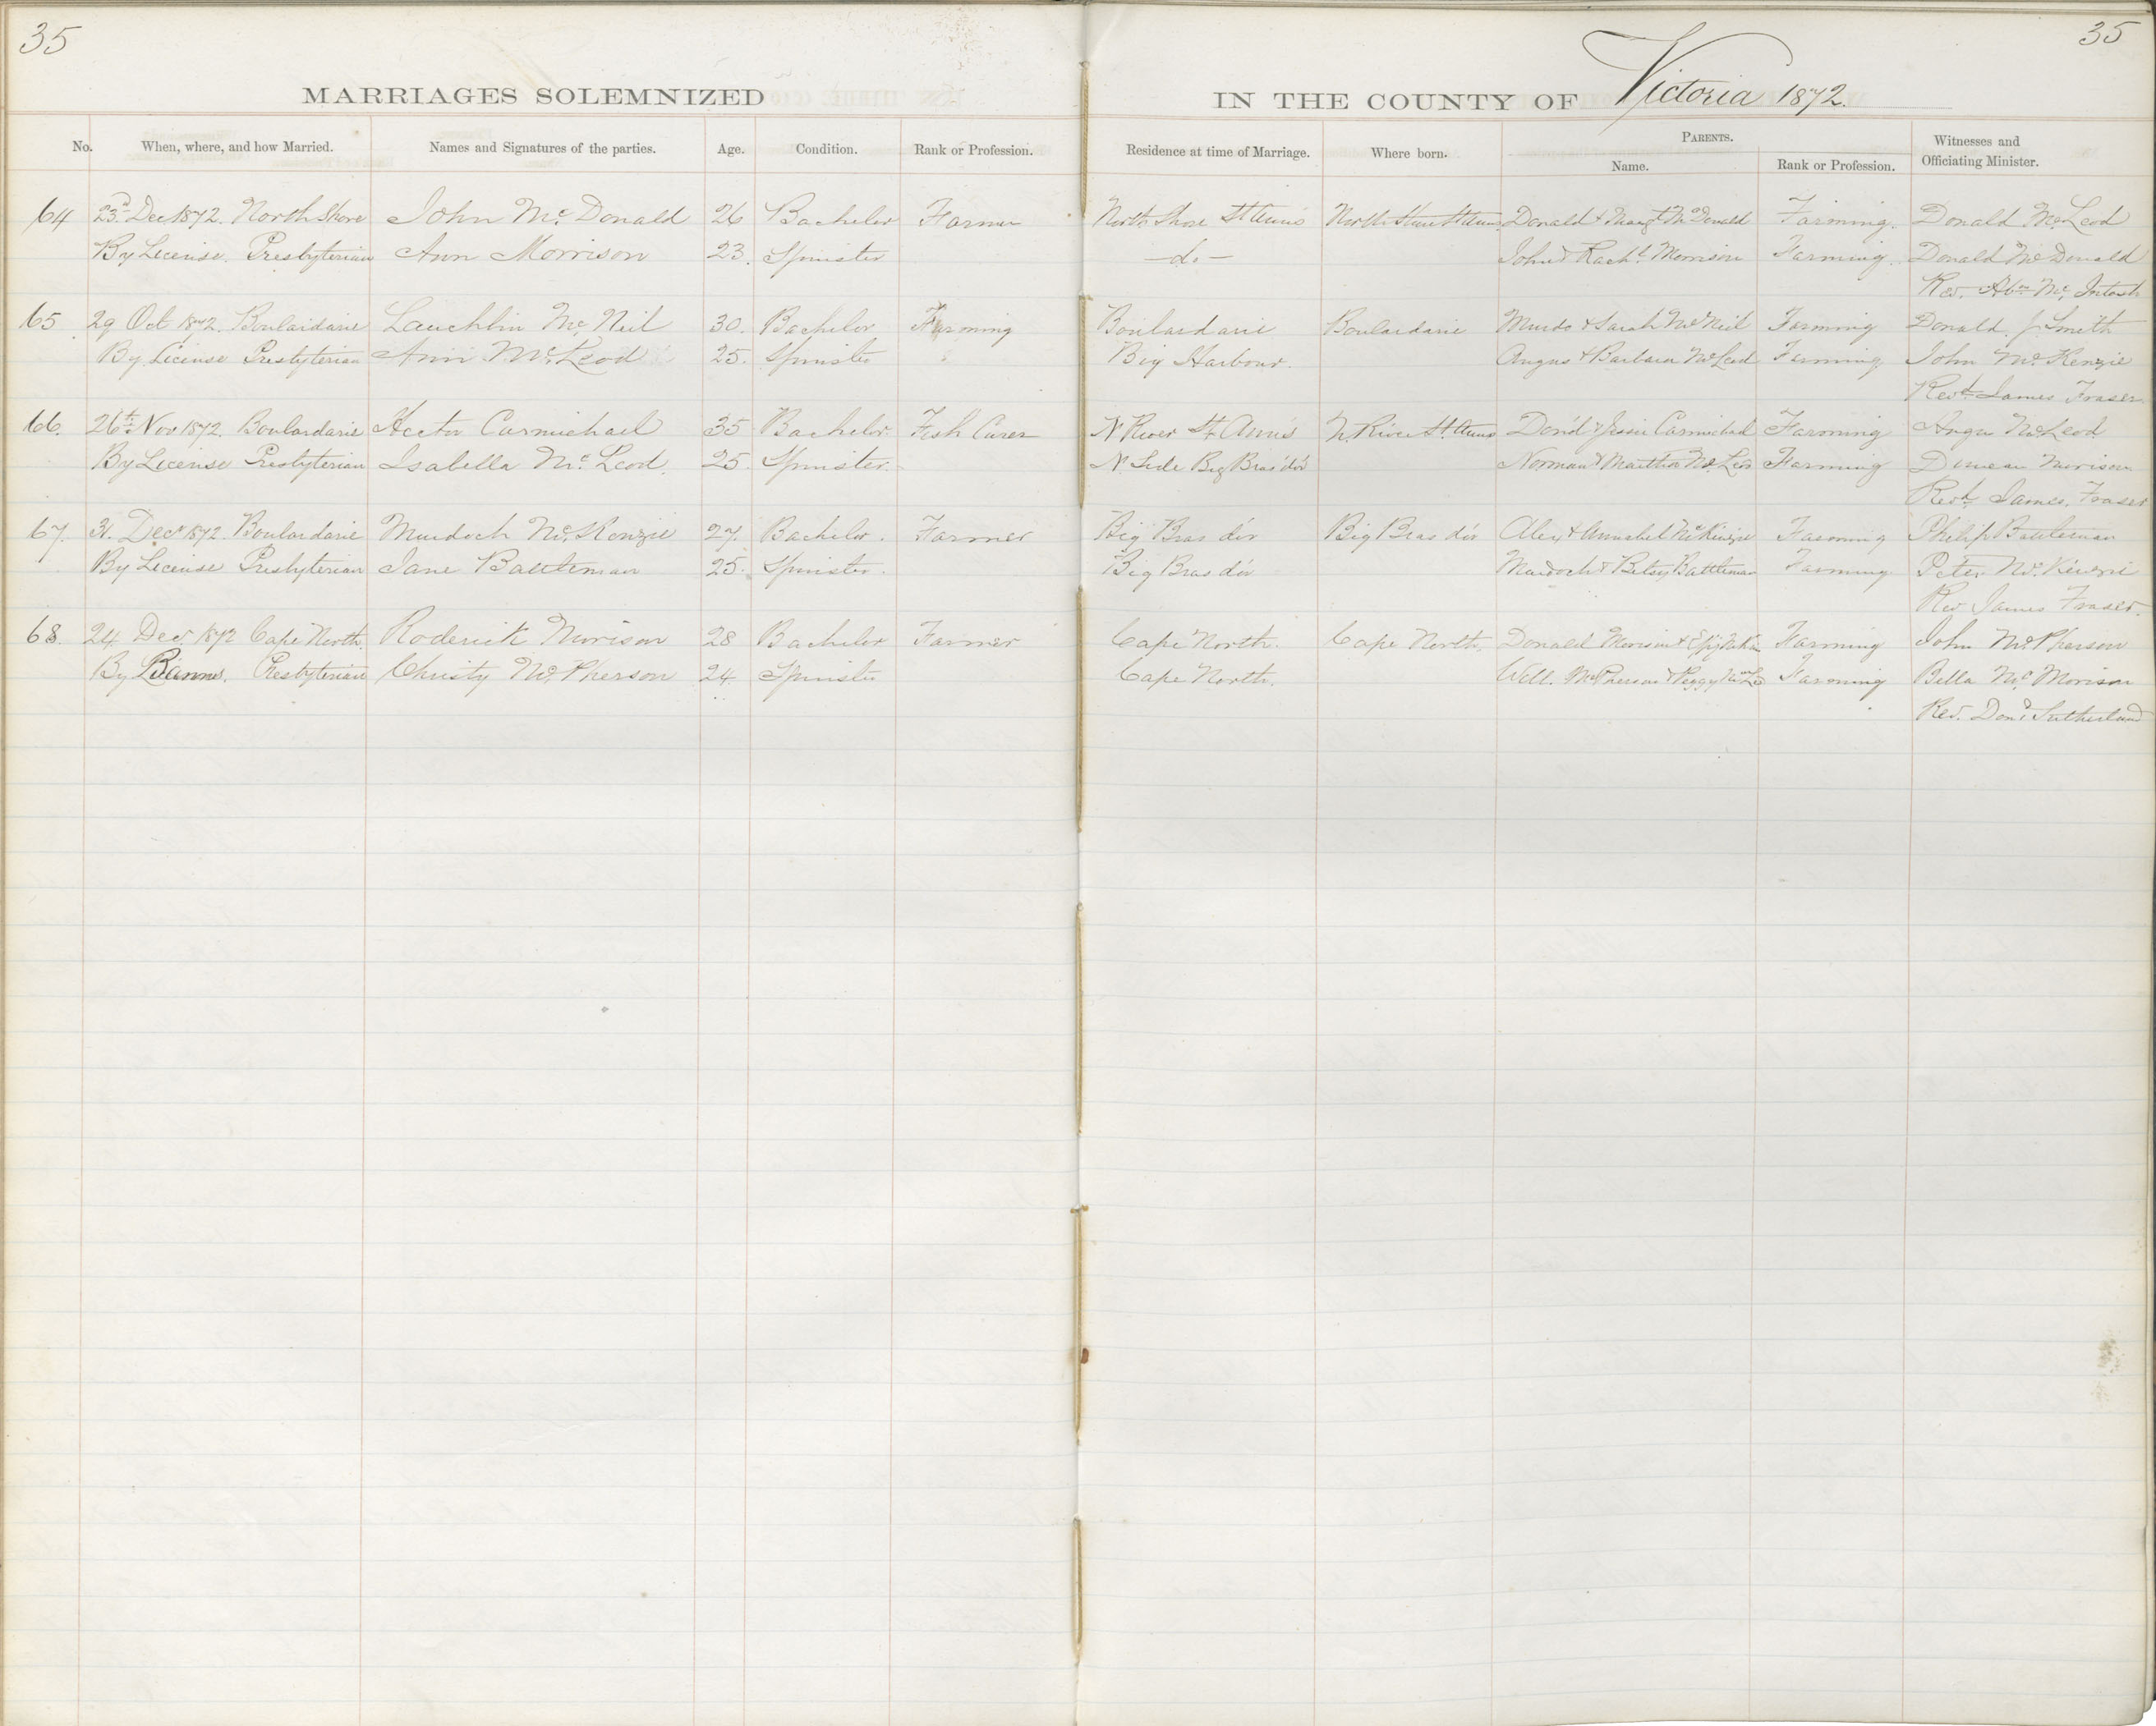 35
35
MARRIAGES SOLEMNIZED IN THE COUNTY OF Victoria 1872.
No. When, where, and how Married. Names and Signatures of the parties. Age. Condition. Rank or Profession. Residence at time of Marriage. Where born. PARENTS. Name. Rank or Profession. Witnesses and Officiating Minister.
64 23d Dec 1872. North Shore John Mc Donald 26 Bachelor Farmer North Shore St Anns North Shore St Anns Donald & Margt McDonald Farming. Donald McLeod
By License. Presbyterian Ann Morrison 23. Spinster -do- John & Rachl Morrison Farming. Donald McDonald
Rev. Abm Mc Intosh
65 29 Oct 1872. Boulardarie Lauchlin Mc Neil 30. Bachelor Farming Boulardarie Boulardarie Murdo & Sarah McNeil Farming Donald J Smith
By License Presbyterian Ann McLeod 25. Spinster Big Harbour. Angus & Barbara McLeod Farming John McKenzie
Revd James Fraser
66. 26th Nov 1872. Boulardarie Hector Carmichael 35 Bachelor. Fish Curer N River St Anns N River St. Anns Don'd & Jessie Carmichael Farming Angus McLeod
By License Presbyterian Isabella McLeod. 25. Spinster. N. Side Big Bras d'or Norman & Martha McLeod Farming Duncan Morison
Revd James Fraser
67. 31. Decr 1872. Boulardarie Murdoch McKenzie 27. Bachelor. Farmer Big Bras d'or Big Bras d'or Alex & Annabel McKenzie Farming Philip Battleman
By License Presbyterian Jane Battleman 25. Spinster. Big Bras d'or Murdoch & Betsy Battleman Farming Peter McKenzie
Rev James Fraser.
68. 24 Decr 1872 Cape North. Roderick Morison 28 Bachelor Farmer Cape North. Cape North. Donald Morison & Farming John McPherson
By Banns. Presbyterian Christy McPherson 24. Spinster Cape North. Will. McPherson & Peggy Farming Bella Mc Morison
Rev. Dond Sutherland